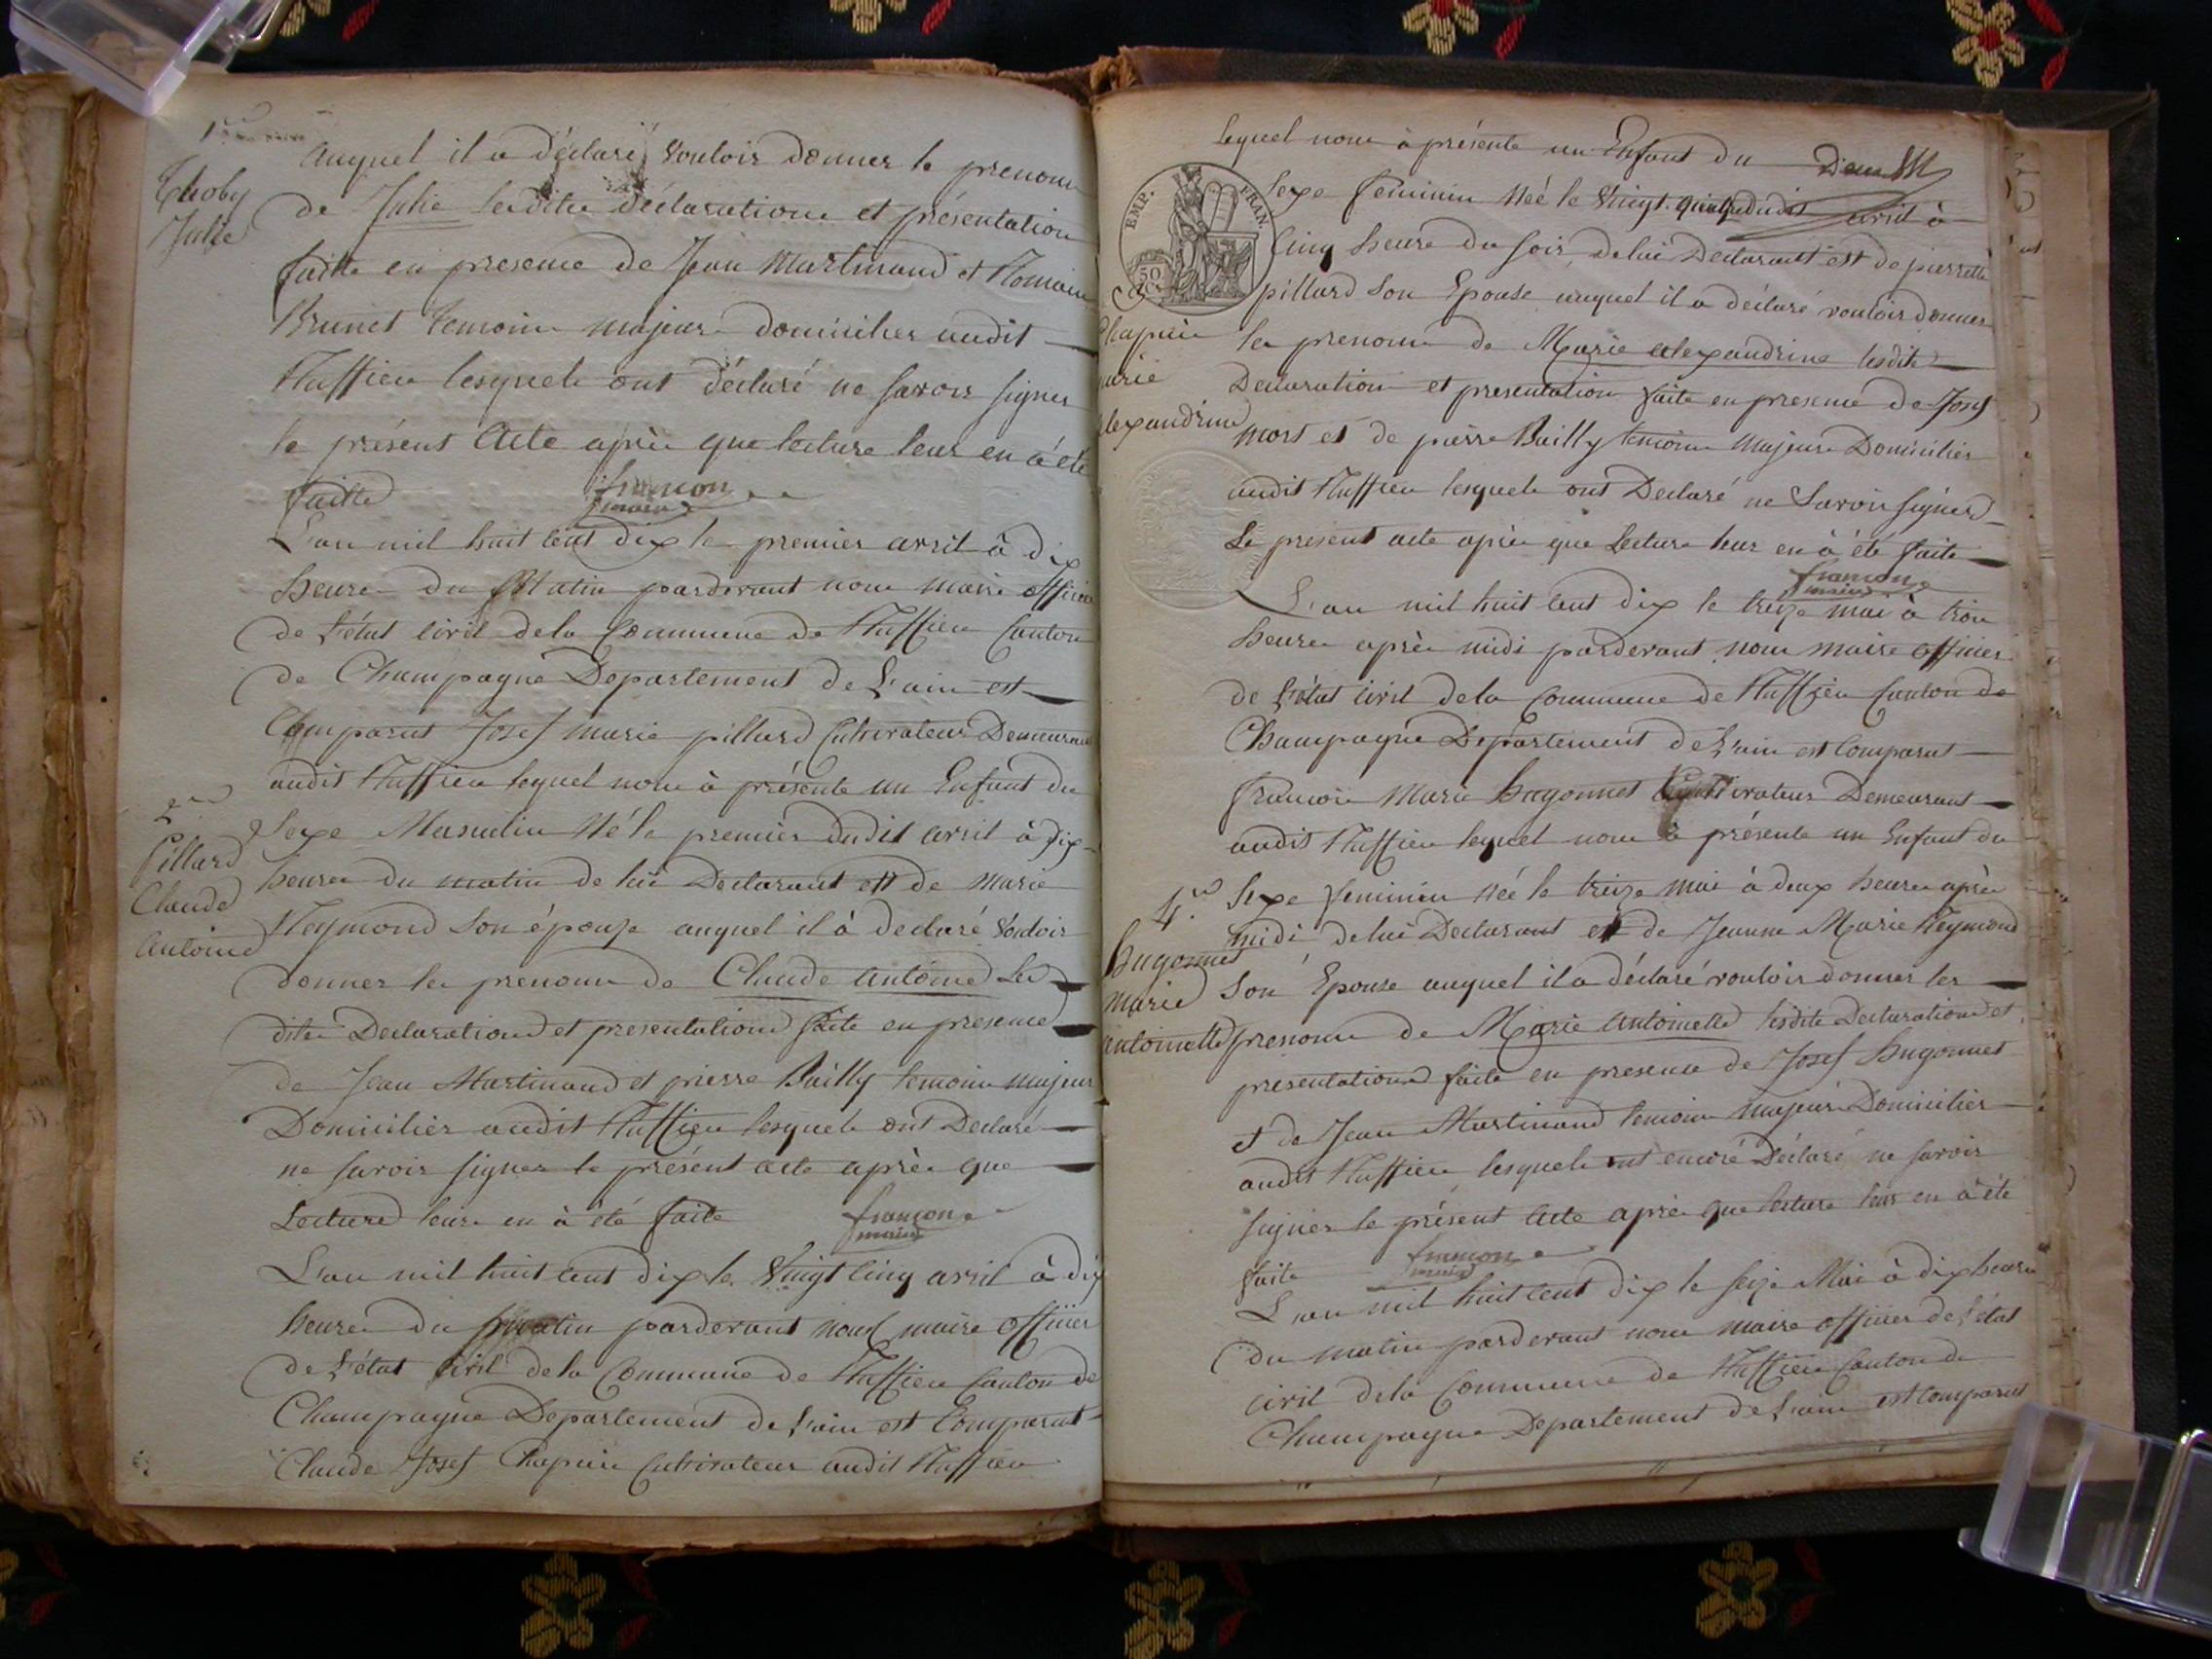 1er
Thoby
Julie
auquel il a déclaré vouloir donner le prenom
de Julie lesditte déclaration et présentation
faitte en presence de Jean Martinand et Romain
Brunet temoins majeurs domiciliés audit
Ruffieu lesquels ont déclaré ne savoir signer
le présent acte après que lecture leur en a été
faitte
françon
maire
L'an mil huit cent dix le premier avril à dix
heures du Matin pardevant nous maire officier
de l'état civil de la Commune de Ruffieu Canton
de Champagne Departement de L'ain est
Comparut Josef marie pillard Cultivateur Demeurant
audit Ruffieu lequel nous à présenté un Enfant du
2me
Pillard
Claude
Antoine
Sexe Masculin Né le premier dudit avril à dix
heures du matin de lui Declarant et de Marie
Reymond Son épouse auquel il à declaré Vouloir
donner les prenoms de Claude antoine Les
dites Declaration et presentation faite en presence
de Jean Martinand et pierre Bailly temoins majeurs
Domiciliés audit Ruffieu lesquels ont Declaré
ne savoir signer le présent acte après que
Lecture leurs en à été faite
françon
maire
L'an mil huit cent dix le Vingt cinq avril à dix
heures du matin pardevant nous maire officier
de L'état Civil de la Commune de Ruffieu Canton de
Champagne Departement de L'ain est Comparut
Claude Josef Chapuis Cultivateur audit Ruffieu
lequel nous à présenté un Enfant du
EMP. FRAN.
50
Cs
Sexe feminin Née le Vingt quatre dudit avril à
Cinq heures du soir, de lui Declarant et de pierrette
pillard son Epouse auquel il a déclaré vouloir donner
Chapuis
marie
alexandrine
les prenoms de Marie alexandrine lesdites
Declaration et presentation faite en presence de Josef
mort et de pierre Bailly temoins majeurs Domiciliés
audit Ruffieu lesquels ont Declaré ne Savoir signer
Le présent acte après que Lecture leur en à été faite
françon
maire
L'an mil huit cent dix le treize mai à trois
heures après midi pardevant nous maire officier
de L'état civil de la Commune de Ruffieu Canton de
Champagne Departement de L'ain est Comparut
françois Marie hugonnet Cultivateur Demeurant
audit Ruffieu lequel nous à présenté un Enfant du
4me
hugonnet
marie
antoinette
Sexe feminin Née le treize mai à deux heures après
midi de lui Declarant et de Jeanne Marie Reymond
Son Epouse auquel il a déclaré vouloir donner les
prenoms de Marie antoinette lesdite Declaration et
presentation faite en presence de Josef hugonnet
et de Jean Martinand temoins majeurs Domiciliés
audit Ruffieu lesquels ont encore Déclaré ne savoir
signer le présent acte après que lecture leur en à été
faite
françon
maire
L'an mil huit cent dix le seize Mai à dix heures
du matin pardevant nous maire officier de L'état
civil de la Commune de Ruffieu Canton de
Champagne Departement de L'ain est comparut